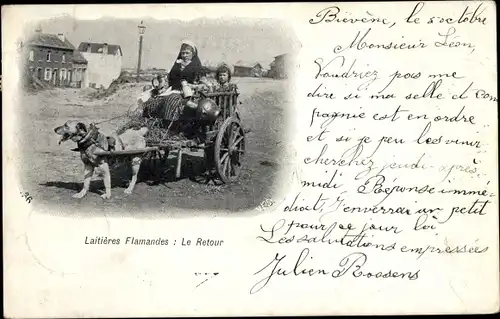 Bievène, le 5 octobre
Monsieur Léon,
Voudriez pas me
dire si ma selle et com
pagnie est en ordre
et si je peu les venir
chercher jeudi après
midi, Réponse immé
diat, J'enverrai un petit
pour ce jour là
Les salutations empressées
Julien Roosens
Laitières Flamandes : Le Retour